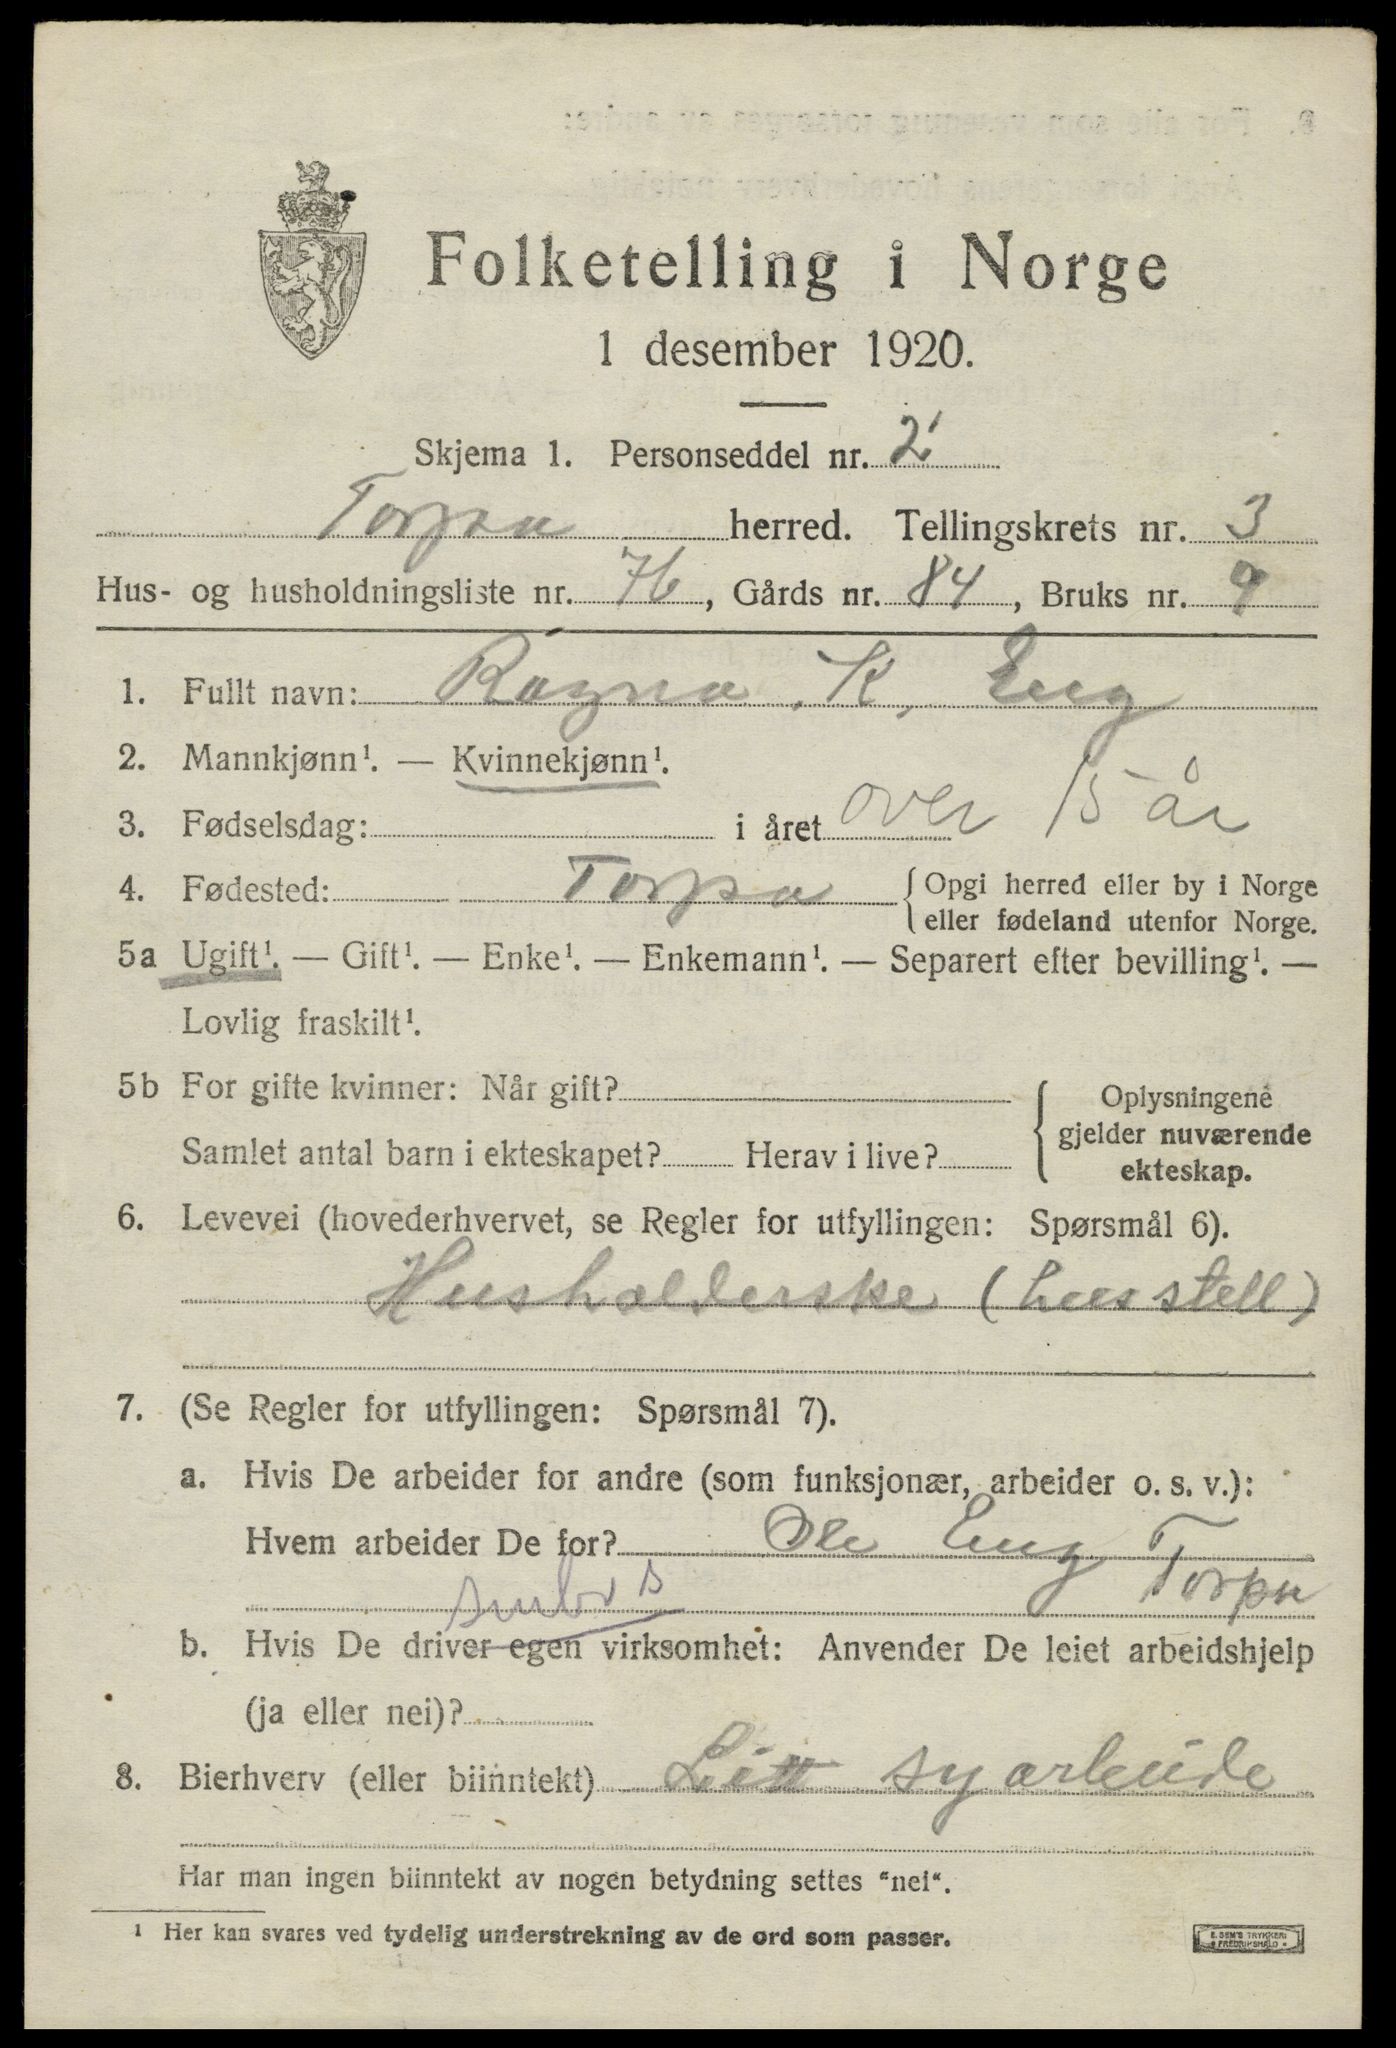 Folketelling i Norge
1 desember 1920.
Skjema 1. Personseddel nr. 2
Torpa herred. Tellingskrets nr. 3
Hus- og husholdningsliste nr. 76, Gårds nr. 84, Bruks nr. 9
1. Fullt navn: Ragna K. Eng
2. Mannkjønn¹. — Kvinnekjønn¹.
3. Fødselsdag: i året over 15 år
4. Fødested: Torpa {Opgi herred eller by i Norge
eller fødeland utenfor Norge.
5a Ugift¹. — Gift¹. — Enke¹. — Enkemann¹. — Separert efter bevilling¹. —
Lovlig fraskilt¹.
5b For gifte kvinner: Når gift?
Samlet antal barn i ekteskapet? Herav i live?
Oplysningene
gjelder nuværende
ekteskap.
6. Levevei (hovederhvervet, se Regler for utfyllingen: Spørsmål 6).
Husholderske (husstell)
7. (Se Regler for utfyllingen: Spørsmål 7).
a. Hvis De arbeider for andre (som funksjonær, arbeider o. s. v.):
Hvem arbeider De for? Ole Eng Torpa
b. Hvis De driver egen virksomhet: Anvender De leiet arbeidshjelp
(ja eller nei)?
8. Bierhverv (eller biinntekt) Litt syarbeide
Har man ingen biinntekt av nogen betydning settes "nei".
¹ Her kan svares ved tydelig understrekning av de ord som passer.
E. SEM'S TRYKKERI
FREDRIKSHALD